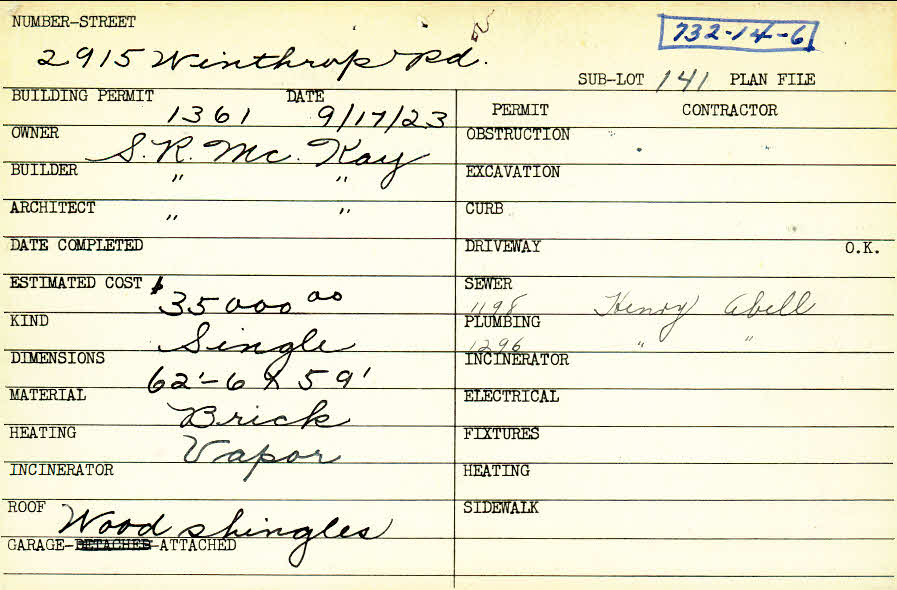 NUMBER-STREET
732-14-6
2915 Winthrop Rd.
SUB-LOT 141 PLAN FILE
BUILDING PERMIT 1361 DATE 9/17/23
OWNER S. R. Mc. Kay
BUILDER " "
ARCHITECT " "
DATE COMPLETED
ESTIMATED COST $35000 00
KIND Single
DIMENSIONS 62'-6 X 59'
MATERIAL Brick
HEATING Vapor
INCINERATOR
ROOF Wood shingles
GARAGE-DETACHED-ATTACHED
PERMIT CONTRACTOR
OBSTRUCTION
EXCAVATION
CURB
DRIVEWAY O.K.
SEWER 1198 Henry Abell
PLUMBING 1296 " "
INCINERATOR
ELECTRICAL
FIXTURES
HEATING
SIDEWALK